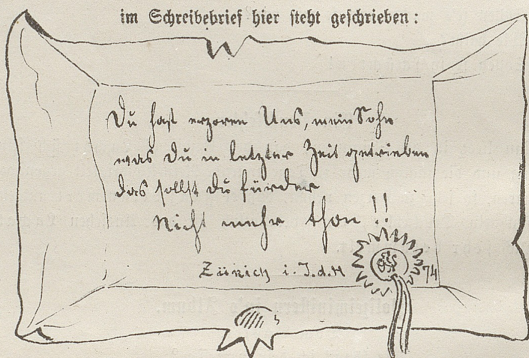 im Schreibebrief hier steht geschrieben:
Du hast erzoren Uns, mein Sohn
was Du in letzter Zeit getrieben
das sollst Du fürder
Nicht mehr thon!!
Zürich i. J. d. H
74